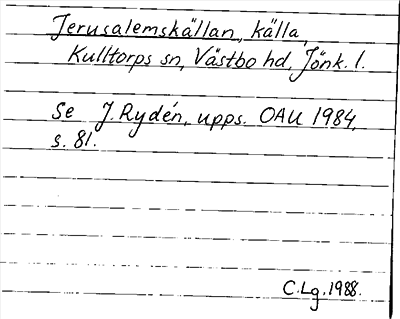 Jerusalemskällan, källa,
Kulltorps sn, Västbo hd, Jönk. l.
Se J. Rydén, upps. OAU 1984,
s. 81.
C.Lg. 1988.